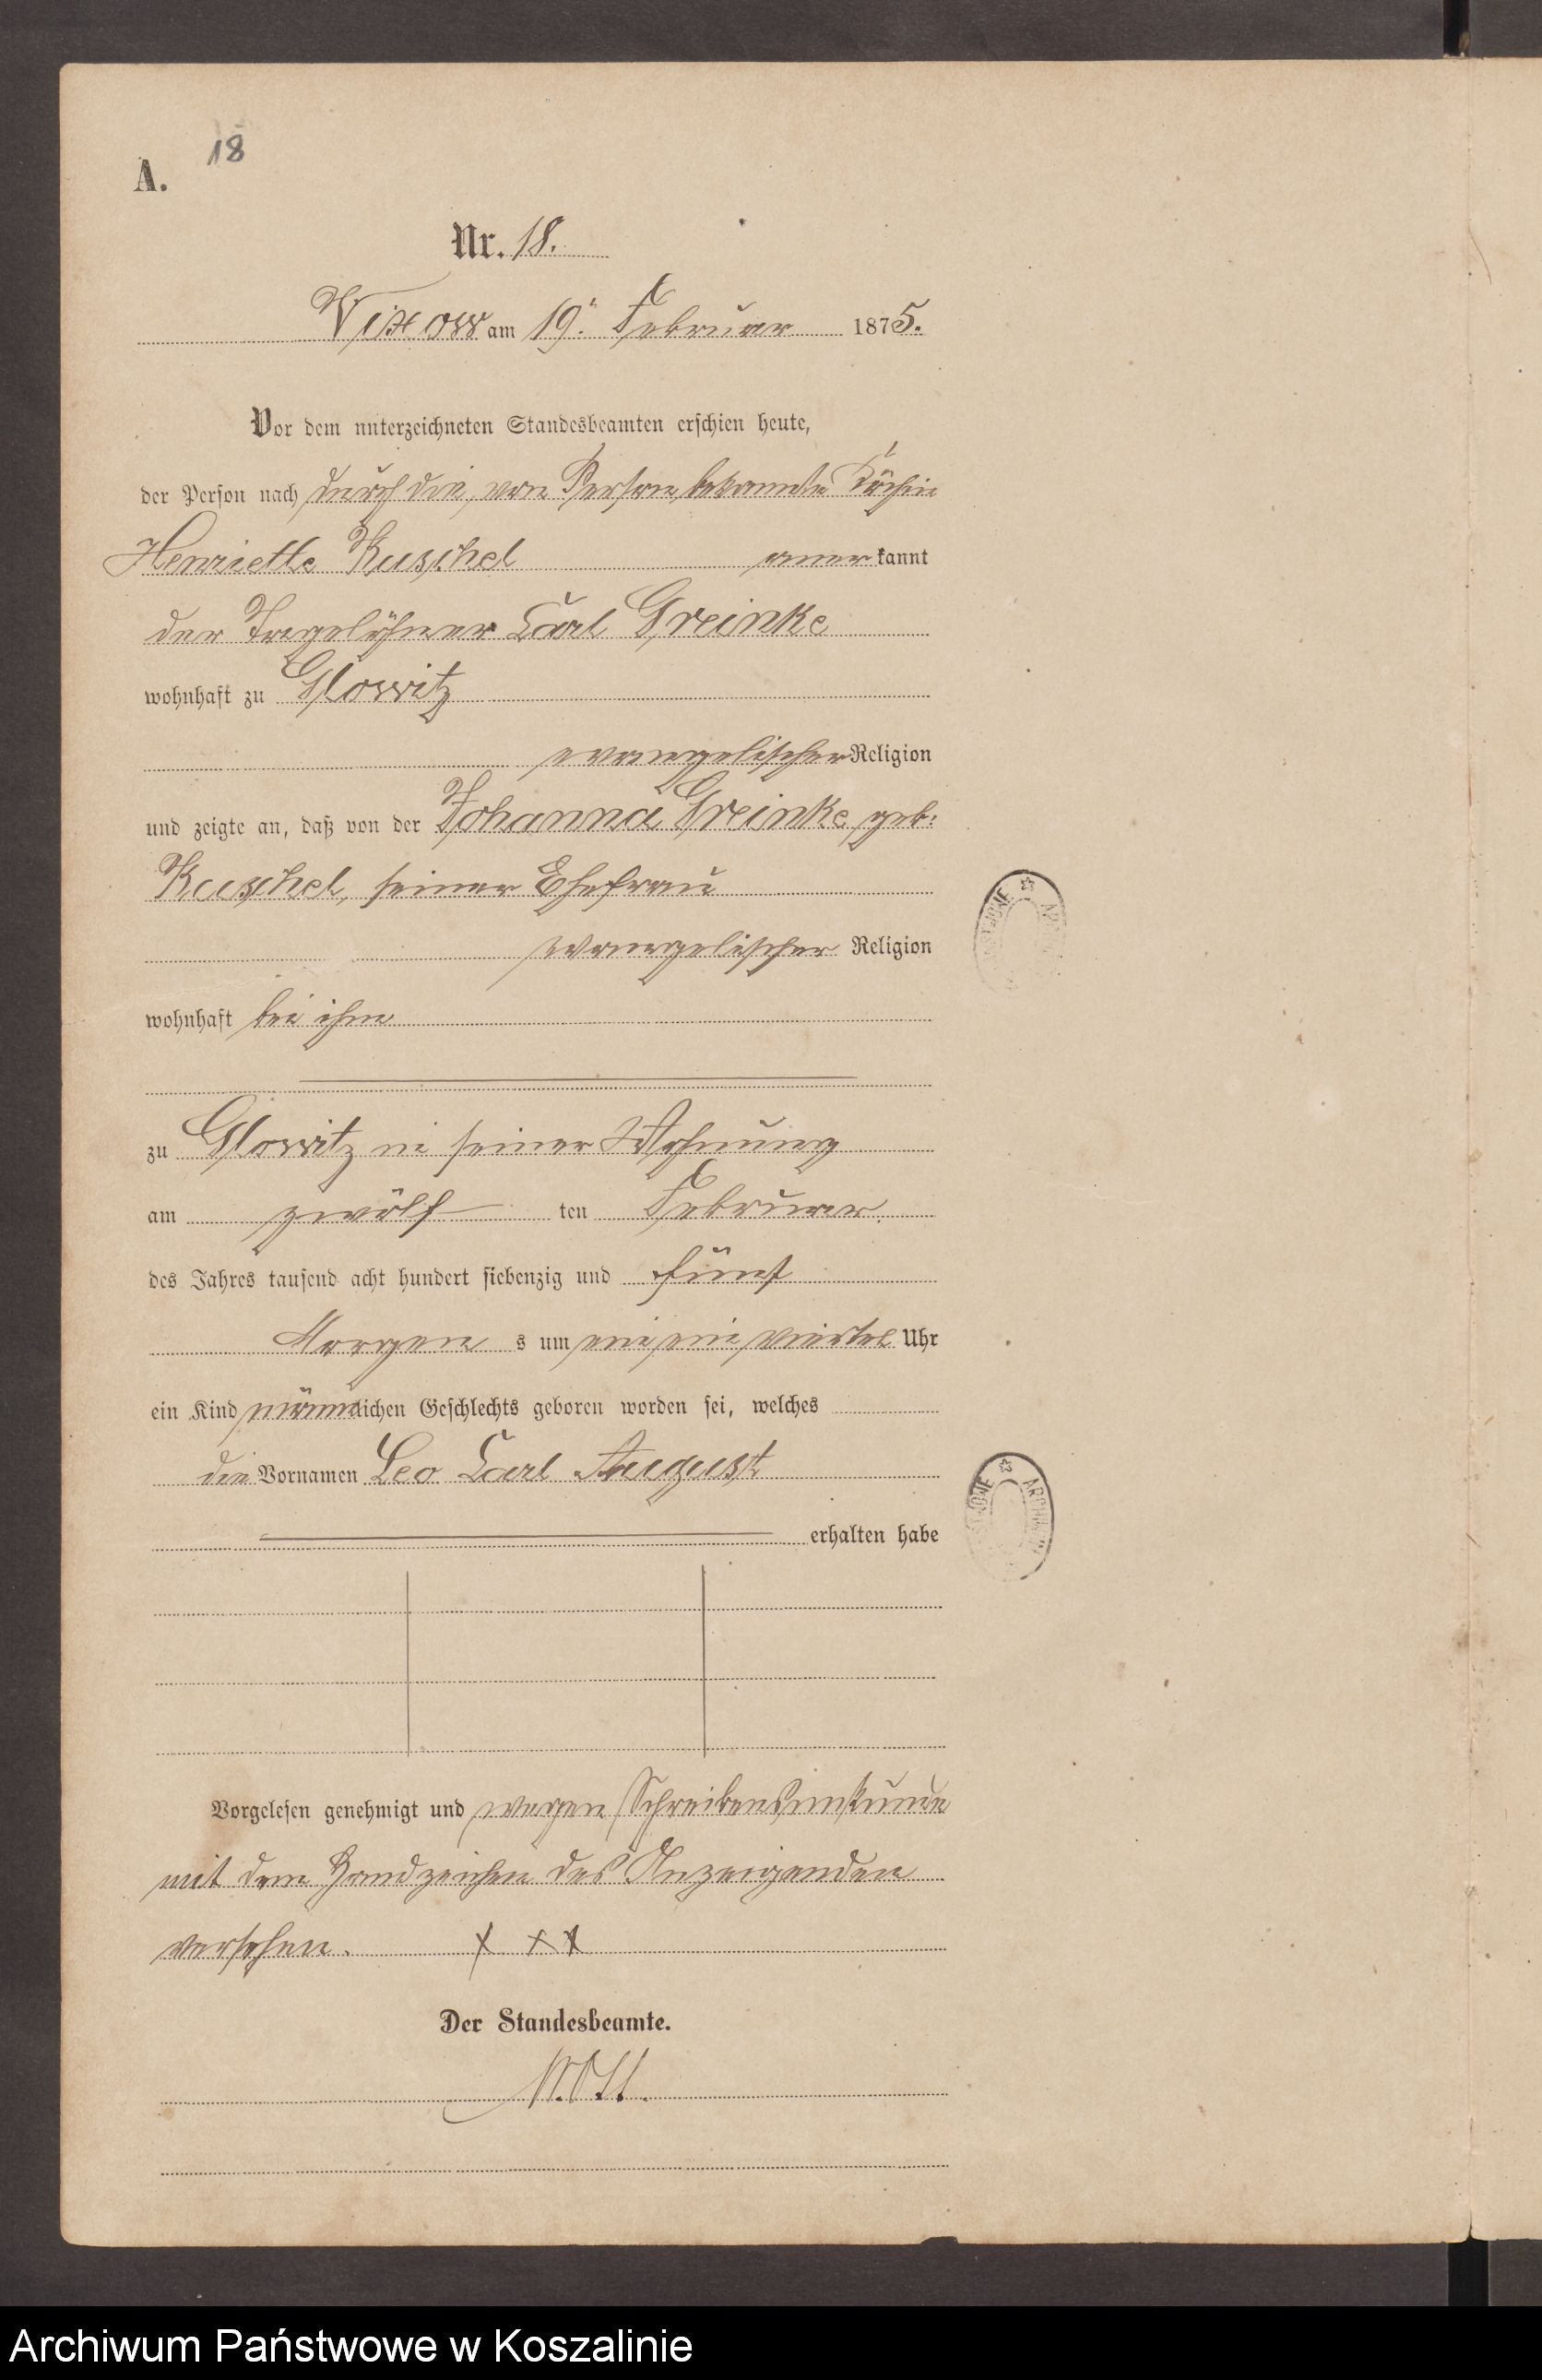 18
A.
Nr. 18.
Vixow am 19. Februar 1875.
Vor dem unterzeichneten Standesbeamten erschien heute,
der Person nach durch die, von Person bekannte Köchin
Henriette Kuschel anerkannt
der Tagelöhner Carl Greinke
wohnhaft zu Glowitz
evangelischer Religion
und zeigte an, daß von der Johanna Greinke geb:
Kuschel, seiner Ehefrau
evangelischer Religion
wohnhaft bei ihm
zu Glowitz in seiner Wohnung
am zwölf ten Februar
des Jahres tausend acht hundert siebenzig und fünf
Morgen s um ein ein viertel Uhr
ein Kind männlichen Geschlechts geboren worden sei, welches
die Vornamen Leo Carl August
erhalten habe
Vorgelesen genehmigt und wegen Schreibensunkunde
mit dem Handzeichen des Anzeigenden
versehen. x x x
Der Standesbeamte.
ARCHIWUM
Archiwum Państwowe w Koszalinie